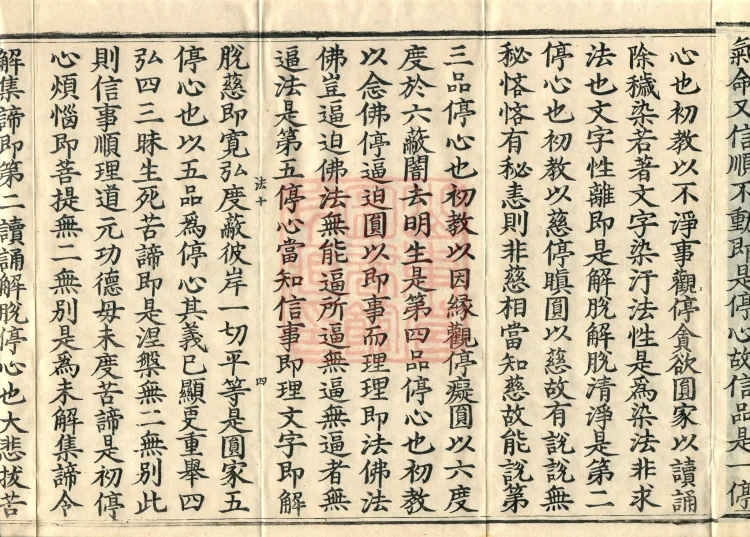 氣命又信順不動即是停心故信品是一停
心也初教以不淨事觀停貪欲圓家以讀誦
除穢染若著文字染汙法性是爲染法非求
法也文字性離即是解脫解脫清淨是第二
停心也初教以慈停瞋圓以慈故有說說無
秘悋悋有秘恚則非慈相當知慈故能說第
三品停心也初教以因緣觀停癡圓以六度
度於六蔽闇去明生是第四品停心也初教
以念佛停逼迫圓以即事而理理即法佛法
佛豈逼迫佛法無能逼所逼無逼無逼者無
逼法是第五停心當知信事即理文字即解
法十 四
脫慈即寛弘度蔽彼岸一切平等是圓家五
停心也以五品爲停心其義已顯更重舉四
弘四三昧生死苦諦即是涅槃無二無別此
則信事順理道元功德毋未度苦諦是初停
心煩惱即菩提無二無別是爲未解集諦令
解集諦即第二讀誦解脫停心也大悲拔苦